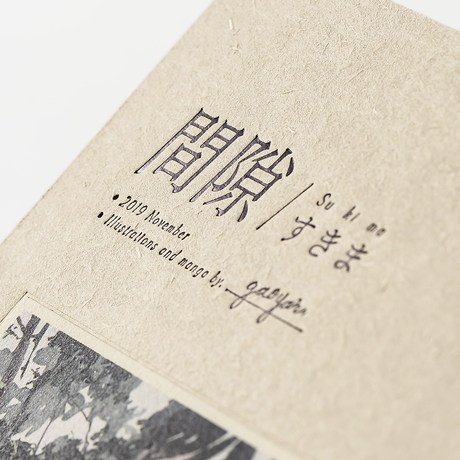 間隙
Su ki ma
すきま
• 2019 November
• Illustrations and manga by. gaoyan